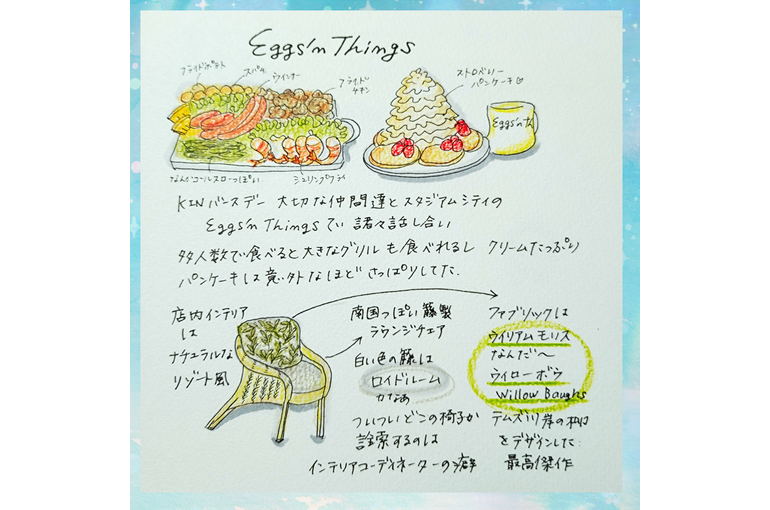 Eggs'n Things
フライドポテト
スパム
ウインナー
フライドチキン
ストロベリー
パンケーキ
Eggs'n
なんかコールスローっぽい
シュリンプフライ
KINバースデー 大切な仲間達とスタジアムシティの
Eggs'n Thingsでい 諸々話し合い
多人数で食べると大きなグリルも食べれるし クリームたっぷり
パンケーキは意外なほど さっぱりしてた.
店内インテリア
は
ナチュラルな
リゾート風
南国っぽい籐製
ラウンジチェア
白い色の籐は
ロイドルーム
かなぁ
ついついどこの椅子か
詮索するのは
インテリアコーディネーターの癖
ファブリックは
ウイリアムモリス
なんだ〜
ウィローボウ
Willow Baughs
テムズ川岸の柳
をデザインした
最高傑作